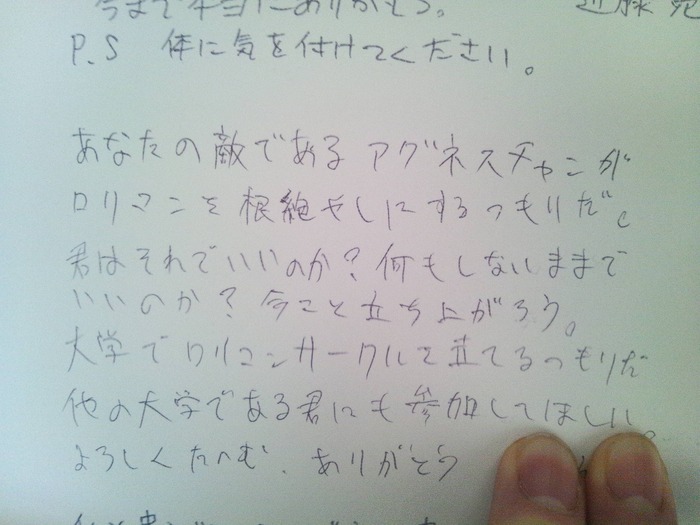 今まで本当にありがとう。 近藤
P.S 体に気を付けてください。
あなたの敵であるアグネスチャンが
ロリコンを根絶やしにするつもりだ。
君はそれでいいのか?何もしないままで
いいのか?今こそ立ち上がろう。
大学でロリコンサークルを立てるつもりだ
他の大学である君にも参加してほしい。
よろしくたのむ。ありがとう